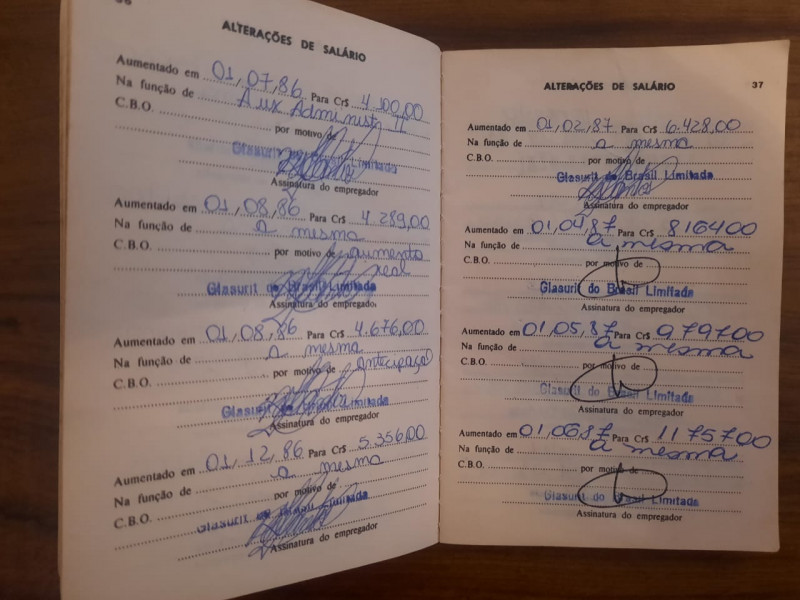 36
ALTERAÇÕES DE SALÁRIO
Aumentado em 01,07,86 Para Cr$ 4.100,00
Na função de Aux Administ II
C.B.O. por motivo de
Glasurit do Brasil Limitada
Assinatura do empregador
Aumentado em 01,08,86 Para Cr$ 4.289,00
Na função de a mesma
C.B.O. por motivo de aumento
real
Glasurit do Brasil Limitada
Assinatura do empregador
Aumentado em 01,08,86 Para Cr$ 4.676,00
Na função de a mesma
C.B.O. por motivo de
Glasurit do Brasil Limitada
Assinatura do empregador
Aumentado em 01,12,86 Para Cr$ 5.356,00
Na função de a mesma
C.B.O. por motivo de
Glasurit do Brasil Limitada
Assinatura do empregador
ALTERAÇÕES DE SALÁRIO 37
Aumentado em 01,02,87 Para Cr$ 6.428,00
Na função de a mesma
C.B.O. por motivo de
Glasurit do Brasil Limitada
Assinatura do empregador
Aumentado em 01,04,87 Para Cr$ 816400
Na função de a mesma
C.B.O. por motivo de
Glasurit do Brasil Limitada
Assinatura do empregador
Aumentado em 01,05,87 Para Cr$ 979700
Na função de a mesma
C.B.O. por motivo de
Glasurit do Brasil Limitada
Assinatura do empregador
Aumentado em 01,06,87 Para Cr$ 1175700
Na função de a mesma
C.B.O. por motivo de
Glasurit do Brasil Limitada
Assinatura do empregador